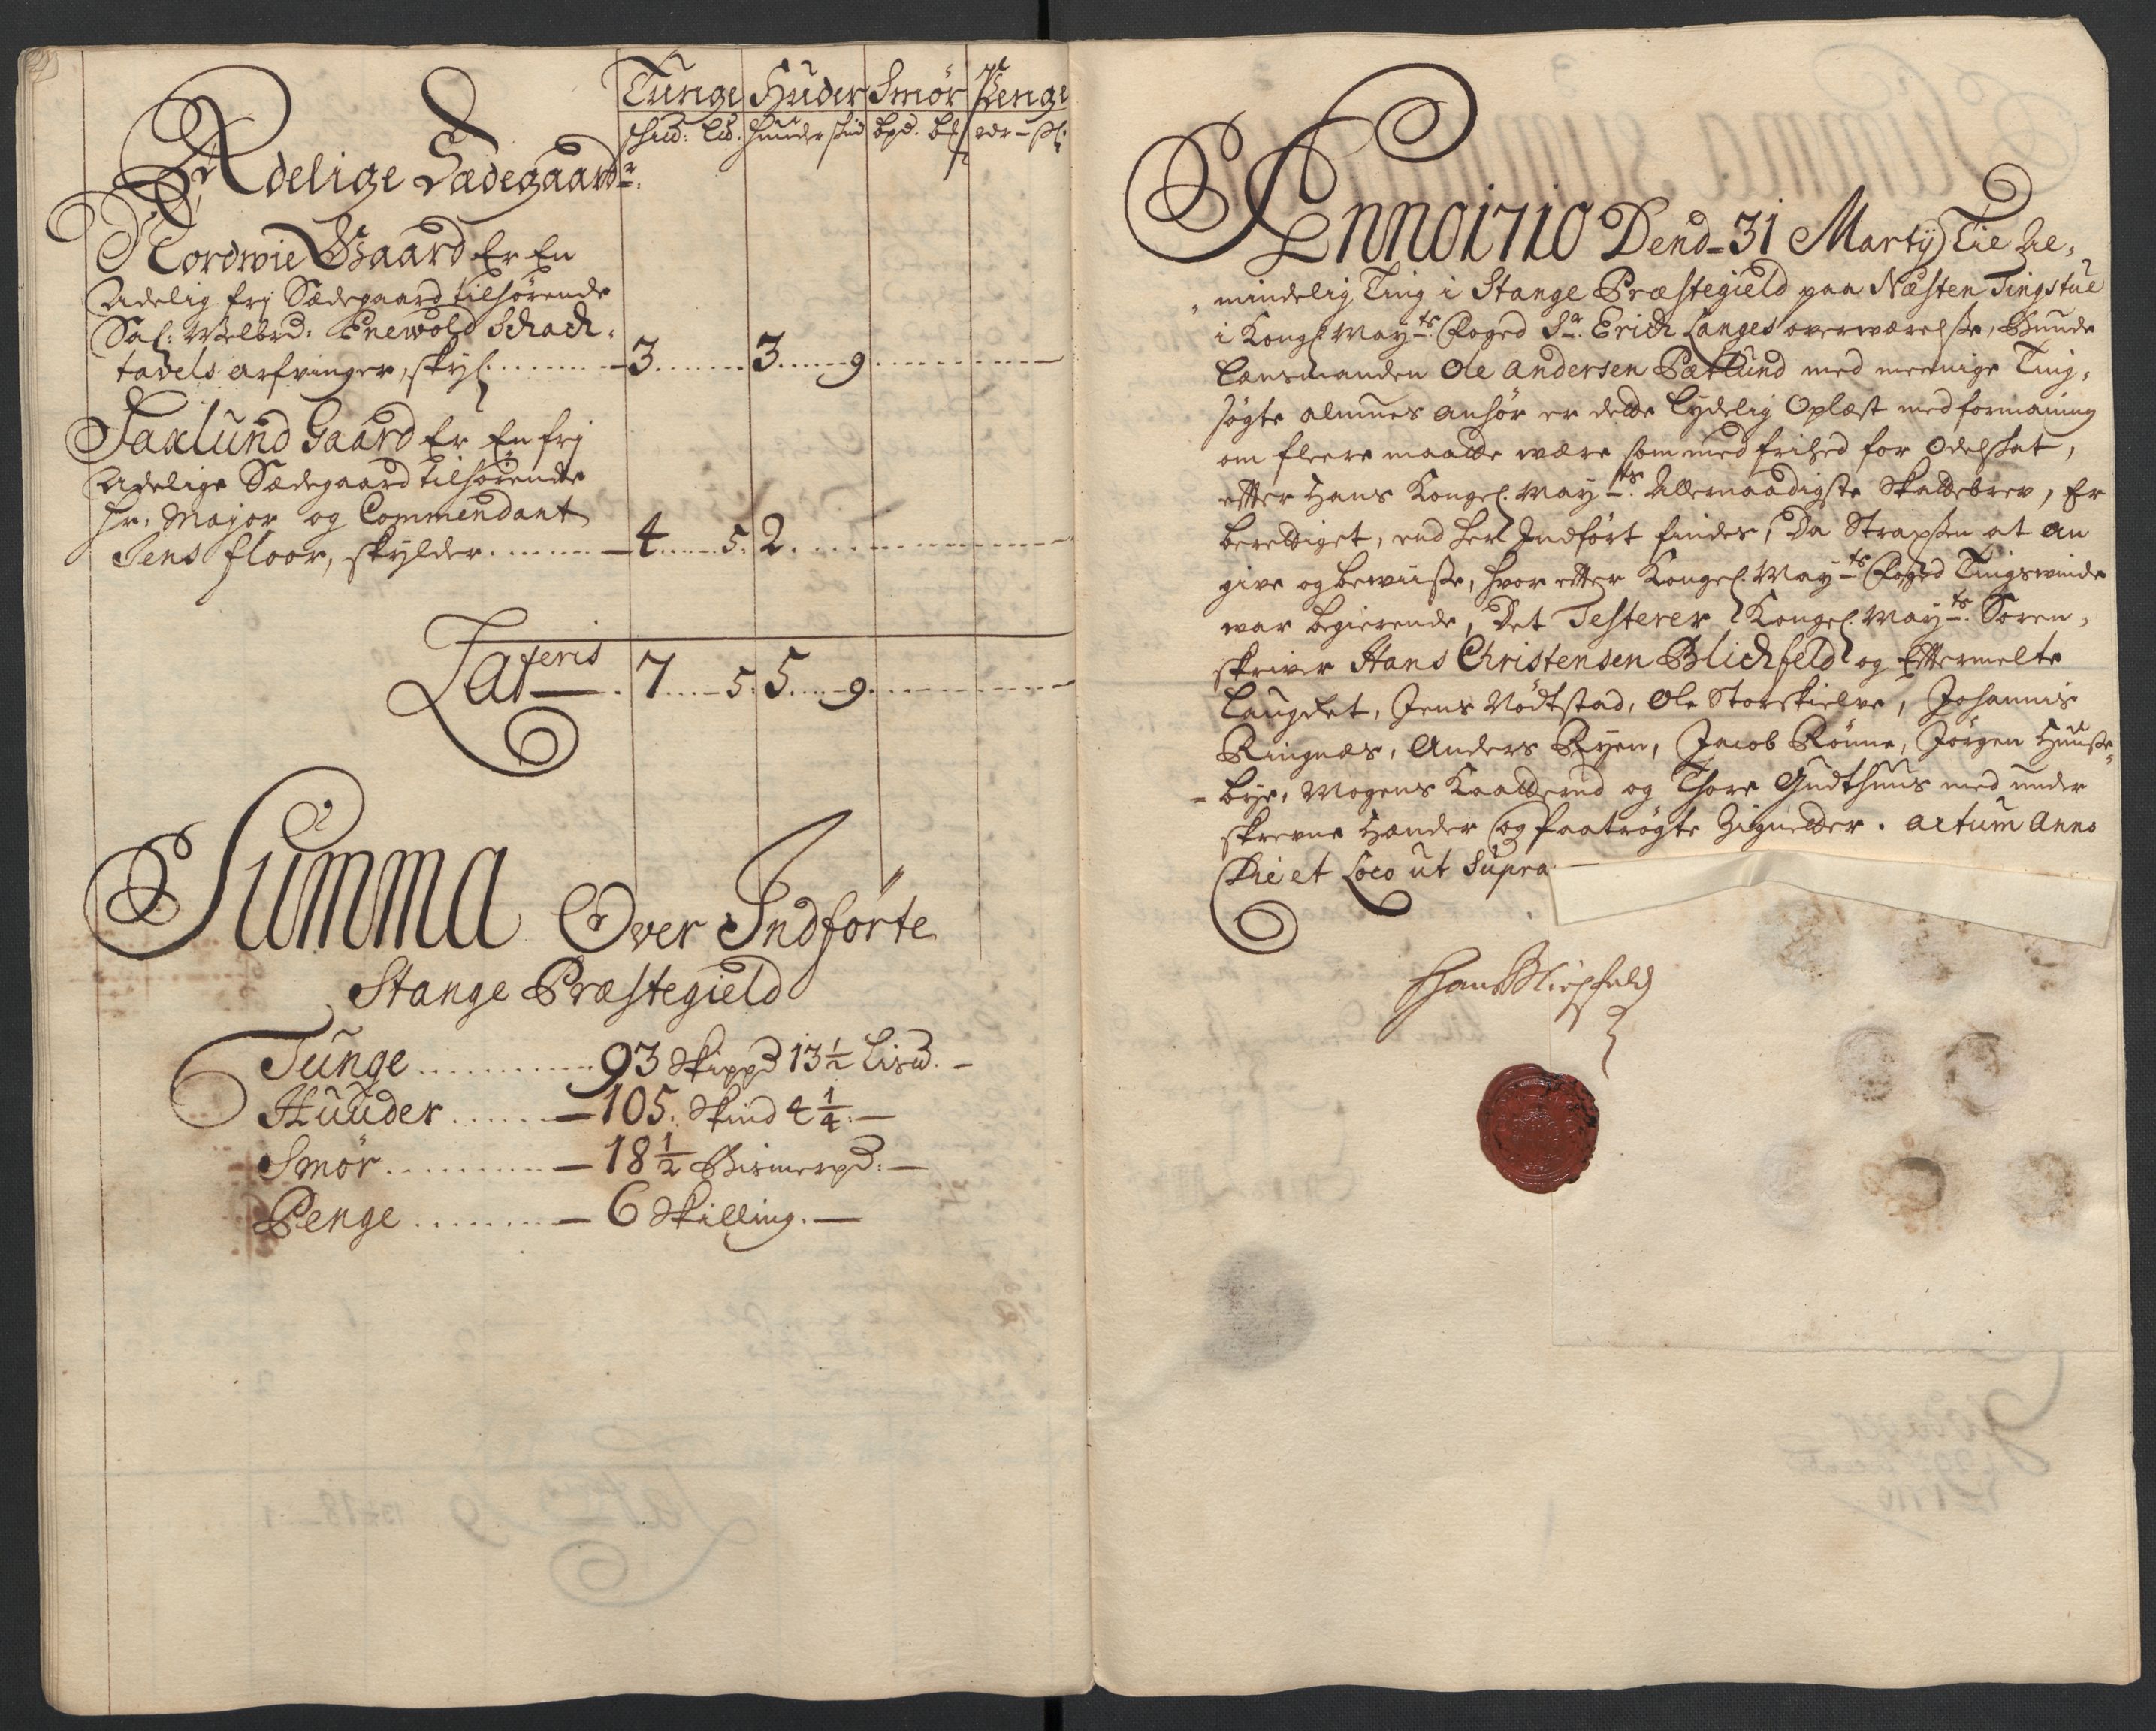 Tunge Huder Smør Penge
Skd: Ld. Huuder skind bpd. bl rdr – sl:
Adelige Sædegaardr:
Nordwie Gaard Er En
Adelig frj Sædegaard tilhørende
Sal: Welbrd: Enewold Schach=
tavels arfvinger, skyl. 3 3 9
Saxlund Gaard Er En frj
Adelige Sædegaard tilhørende
Hr: Major og Commendant
Jens floor, skylder 4 5 2
Lateris 7 5 5 9
Summa Over Indførte
Stange Præstegield
Tunge 93 Skippd 13½ Lisd.
Huuder 105: Skind 4¼:
Smør 18½ Bismerpd:
Penge 6 Skilling.
Anno 1710 Dend 31 Martij Tie Al=
mindelig Ting i Stange Præstegield paa Næsten Tingstue
i Kongl: May:ts Foged Sr. Erich Langes overværelsse, Bunde
Lænsmanden Ole Andersen Pætlund med meenige Ting=
søgte almues anhør er dette lydelig Oplæst med formaning
om fleere maatte være som med frihed for Odelskat,
etter Hans Kongel: May:ts Allernaadigste Skattebrev, Er
berettiget, end her Indført findes, Da Strax at an
give og bewiisse, hvor etter Kongel: May:ts Foged Tingswinde
war begierende, Det Testerer Kongel: May:ts Soren=
skriver Hans Christensen Blichfeld og Ettermelte
Laugret, Jens Nødtstad, Ole Storskielve, Johannis
Ringnæs, Anders Ryen, Jacob Rønne, Jørgen Huusse=
bye, Mogens Kaatterud og Thore Gudthuus med under
skrevne Hænder og paatrøgte Zignetter. Actum Anno
Die et Loco ut Supra
Hans Blichfeld